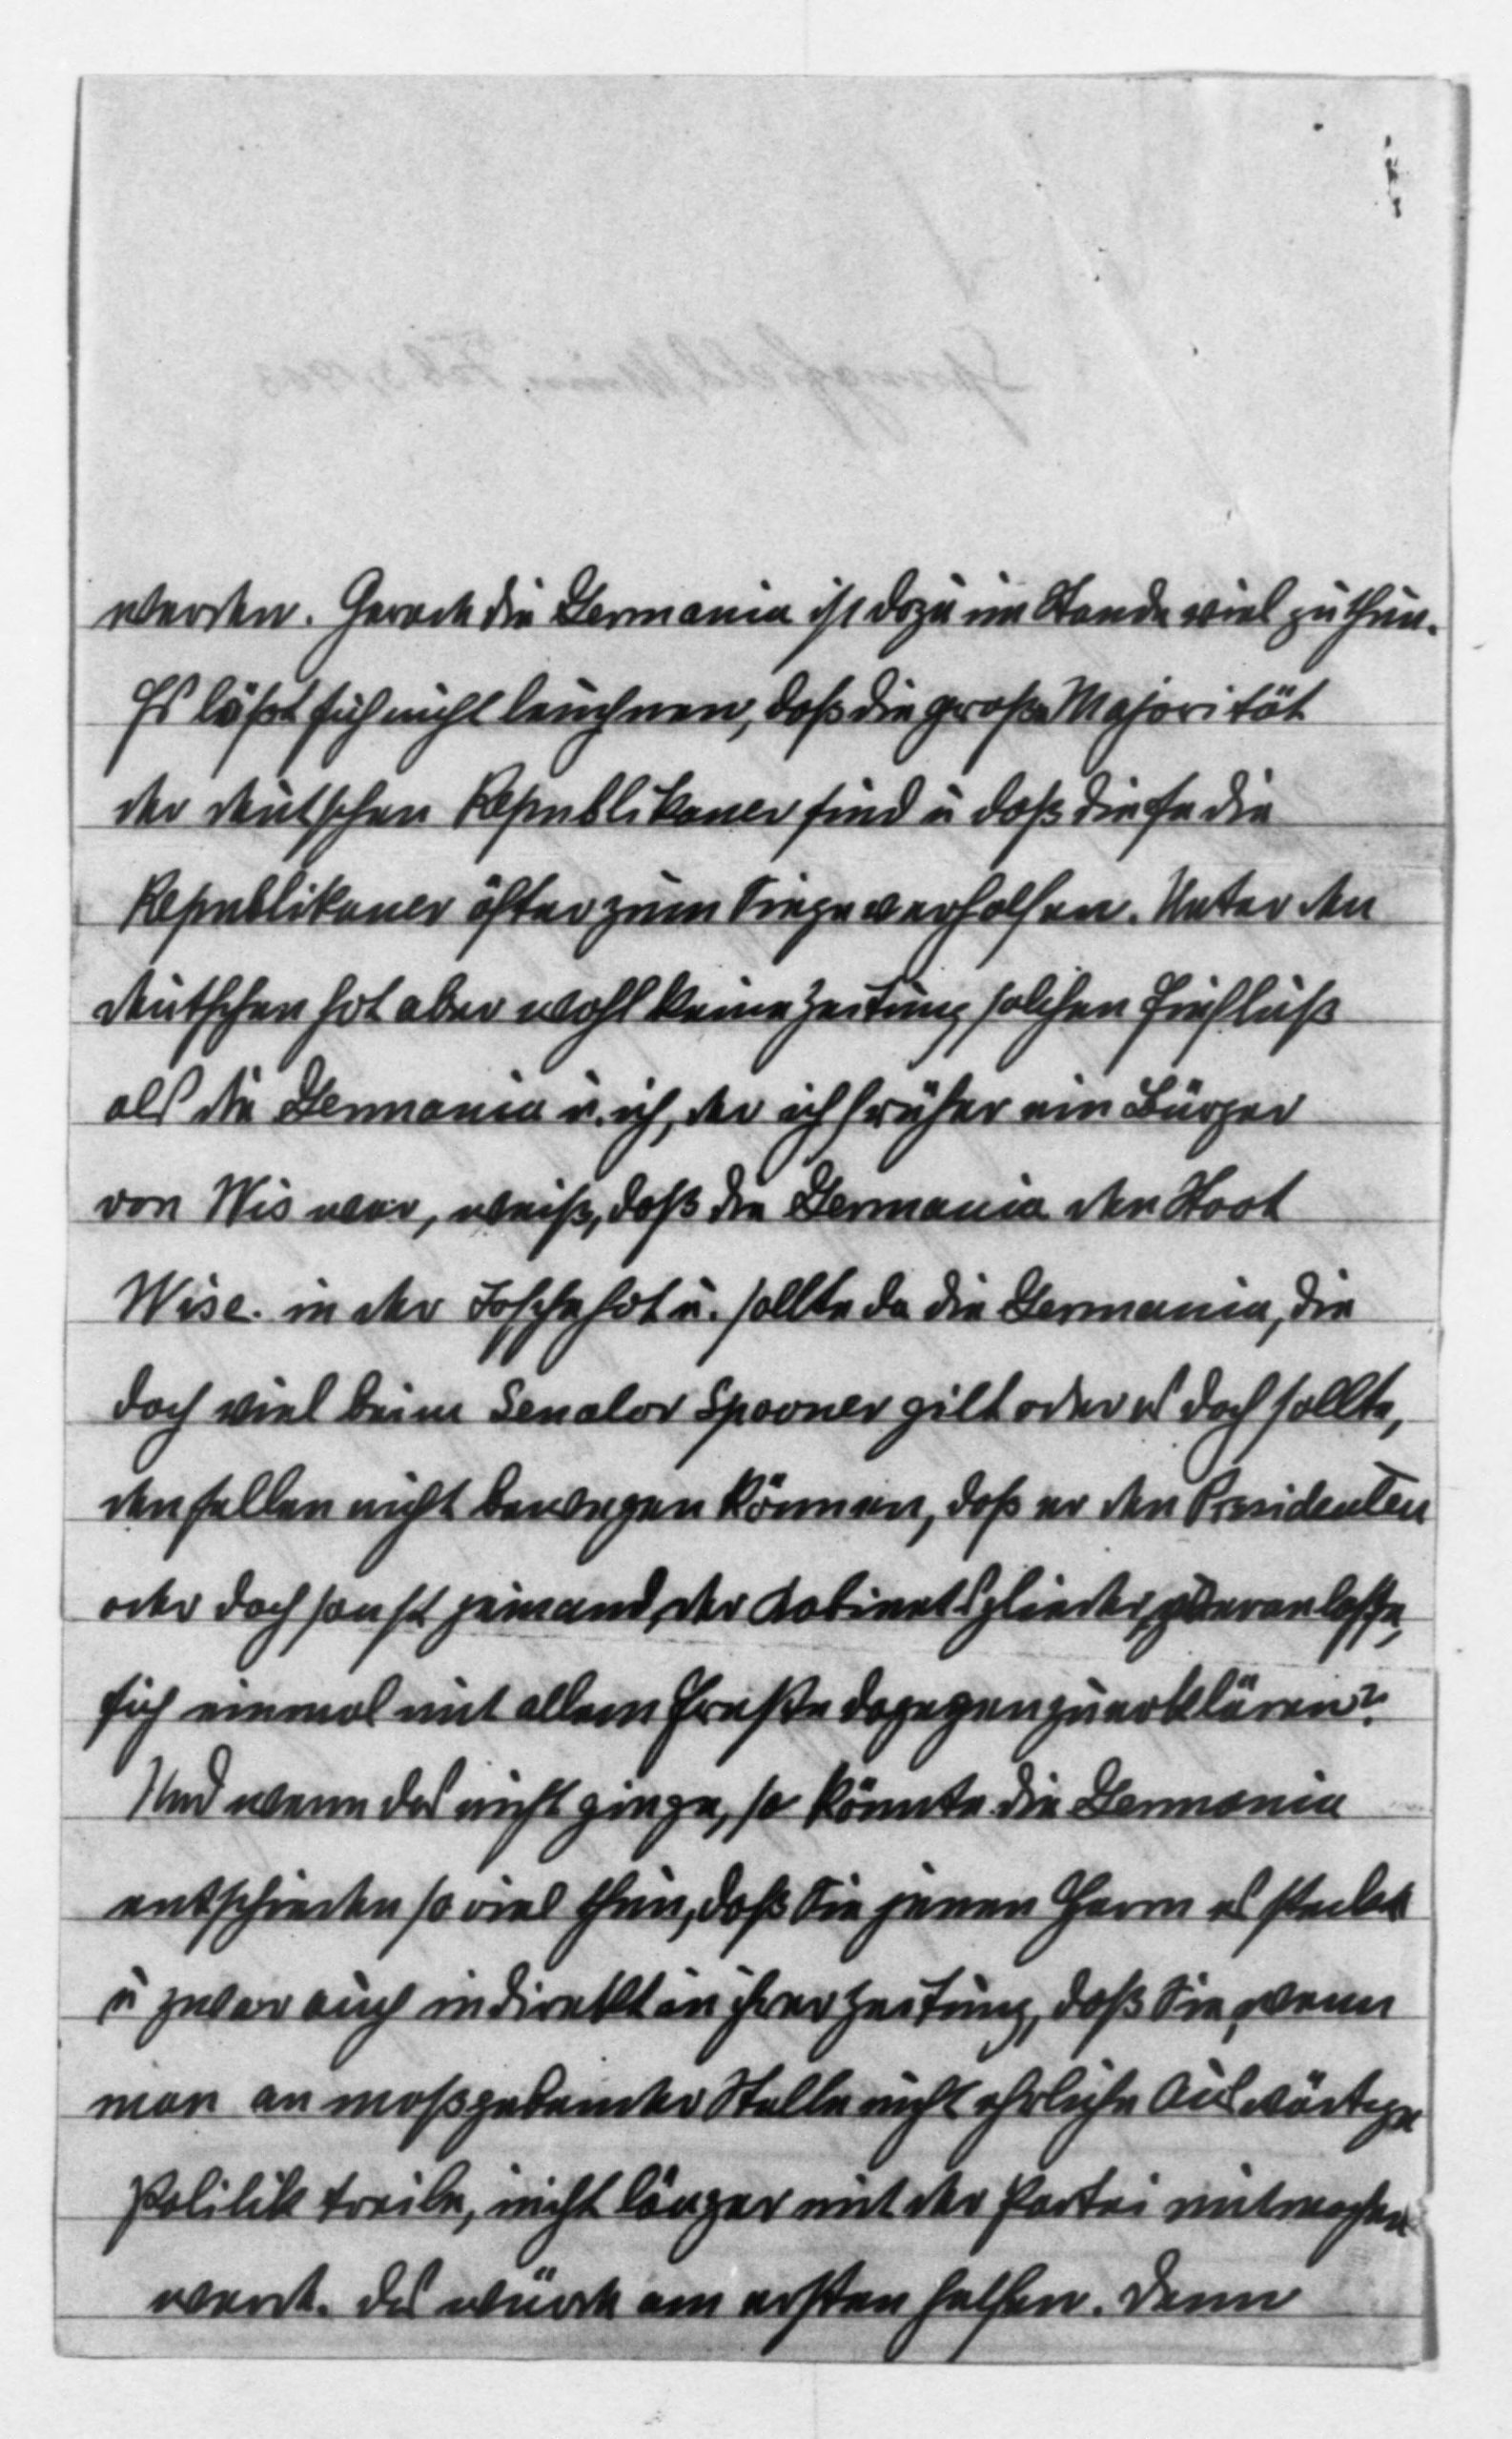 werden. Gerade die Germania ist dazu im Stande viel zu thun.
Es läßt sich nicht leuchnen, daß die große Majorität
der deutschen Republikaner sind u daß diese die
Republikaner öfter zum Siege verholfen. Unter den
deutschen hat aber wohl keine Zeitung solchen Einfluß
als die Germania u. ich, der ich früher ein Bürger
von Wis war, weiß, daß die Germania den Staat
Wisc. in der Tasche hat u. sollte da die Germania, die
doch viel beim Senator Spooner gilt oder es doch sollte,
denselben nicht bewegen können, daß er den Presidenten
oder doch sonst jemand, der Kabinetsglieder, veranlasse,
sich einmal mit allem Ernste dagegen zu erklären?
Und wenn das nicht ginge, so könnte die Germania
entschieden so viel thun, daß Sie jenen Herrn es steckt
u zwar auch indirekt in ihrer Zeitung, daß Sie, wenn
man an maßgebender Stelle nicht ehrliche Auswärtige
Politik treibe, nicht länger mit der Partei mitmachen
werde. Das würde am ersten helfen. Denn